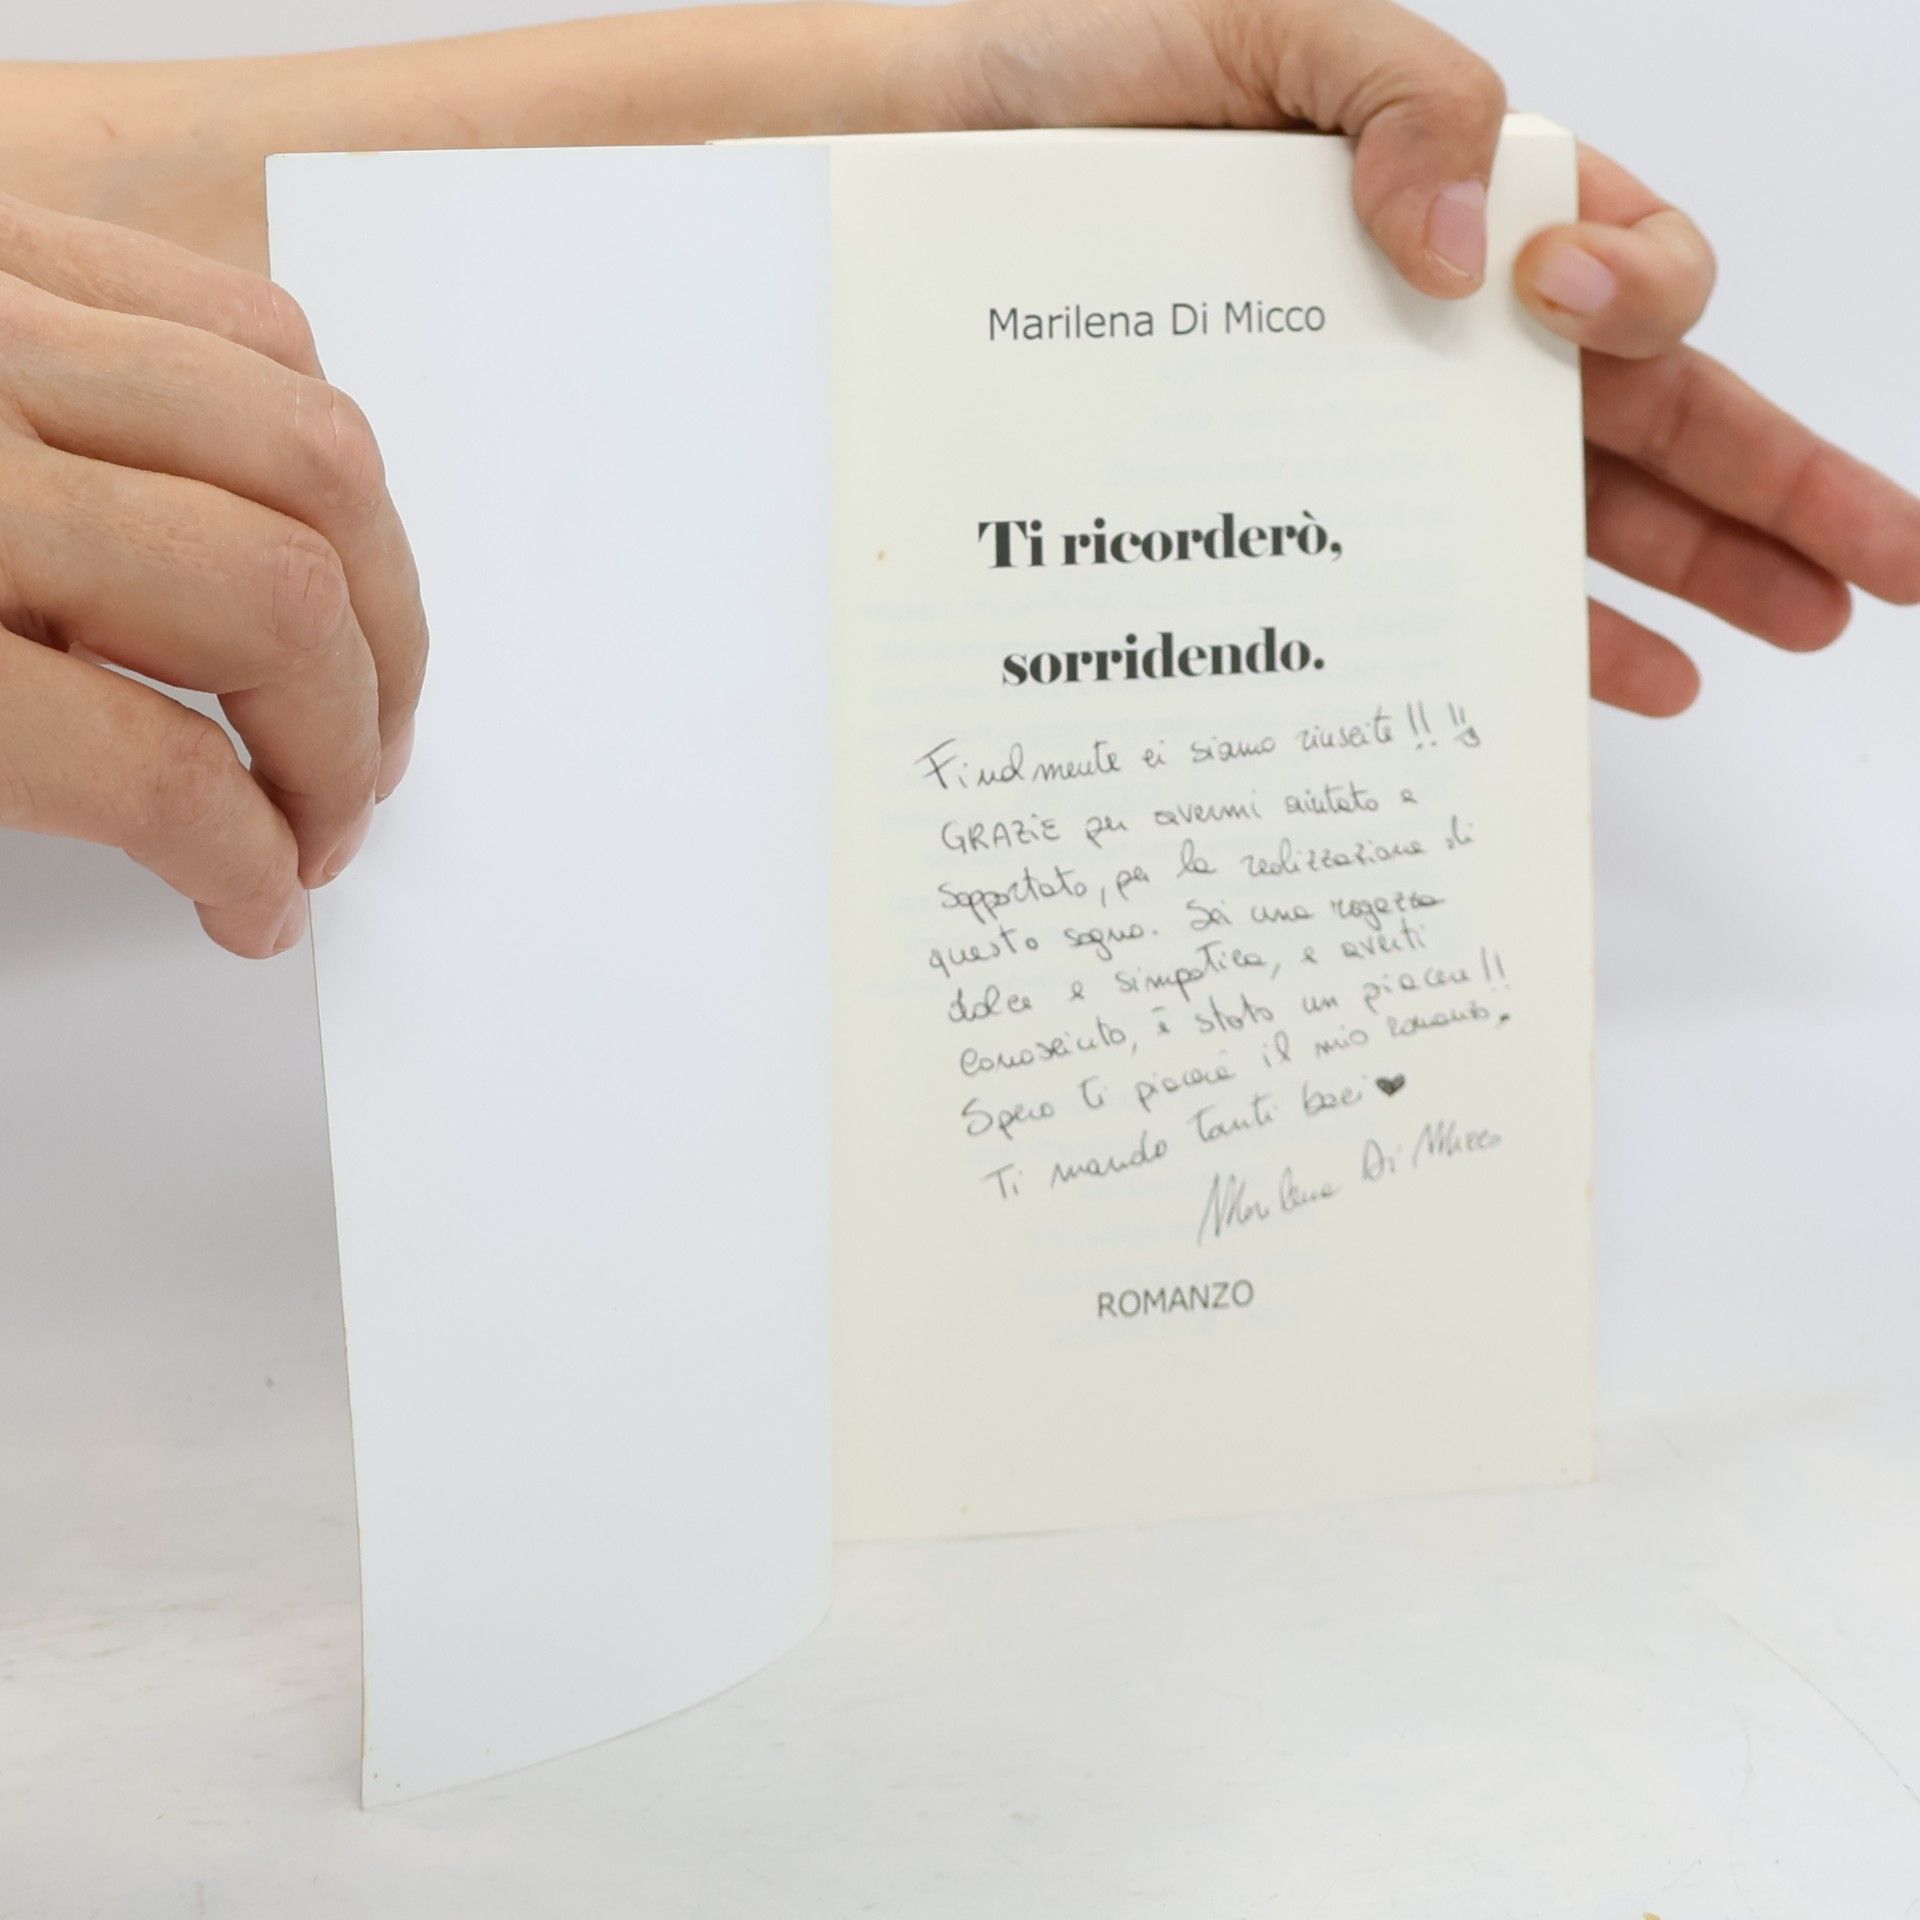 Marilena Di Micco
Ti ricorderò,
sorridendo.
Finalmente ci siamo riuscite!!
GRAZIE per avermi aiutato e
sopportato, per la realizzazione di
questo sogno. Sei una ragazza
dolce e simpatica, e averti
conosciuto, è stato un piacere!!
Spero ti piacerà il mio romanzo.
Ti mando tanti baci ♥
Marilena Di Micco
ROMANZO